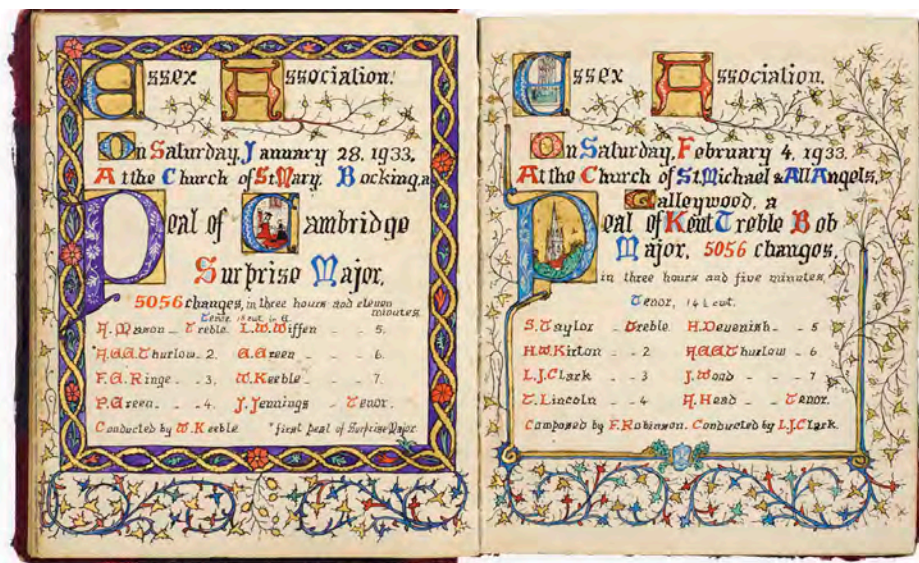 Essex Association.
On Saturday, January 28. 1933.
At the Church of St. Mary. Bocking, a
Peal of Cambridge
Surprise Major.
5056 changes, in three hours and eleven
minutes
Tenor 18 cwt.
A. Mason _ Treble. L.W. Wiffen _ _ 5.
*A.G.G. Thurlow _ 2. A. Green _ _ _ 6.
F.A. Ringe _ _ 3. W. Keeble _ _ _ 7.
P. Green _ _ _ 4. J. Jennings _ Tenor.
Conducted by W. Keeble *first peal of Surprise Major.
Essex Association.
On Saturday, February 4. 1933.
At the Church of St. Michael & All Angels,
Galleywood, a
Peal of Kent Treble Bob
Major, 5056 changes,
in three hours and five minutes,
Tenor, 14½ cwt.
S. Taylor _ Treble H. Devenish _ _ 5
H.W. Kirton _ _ 2 A.G.G. Thurlow _ 6
L.J. Clark _ _ 3 J. Wood _ _ _ 7
T. Lincoln _ _ 4 A. Head _ _ Tenor.
Composed by F. Robinson. Conducted by L.J. Clark.